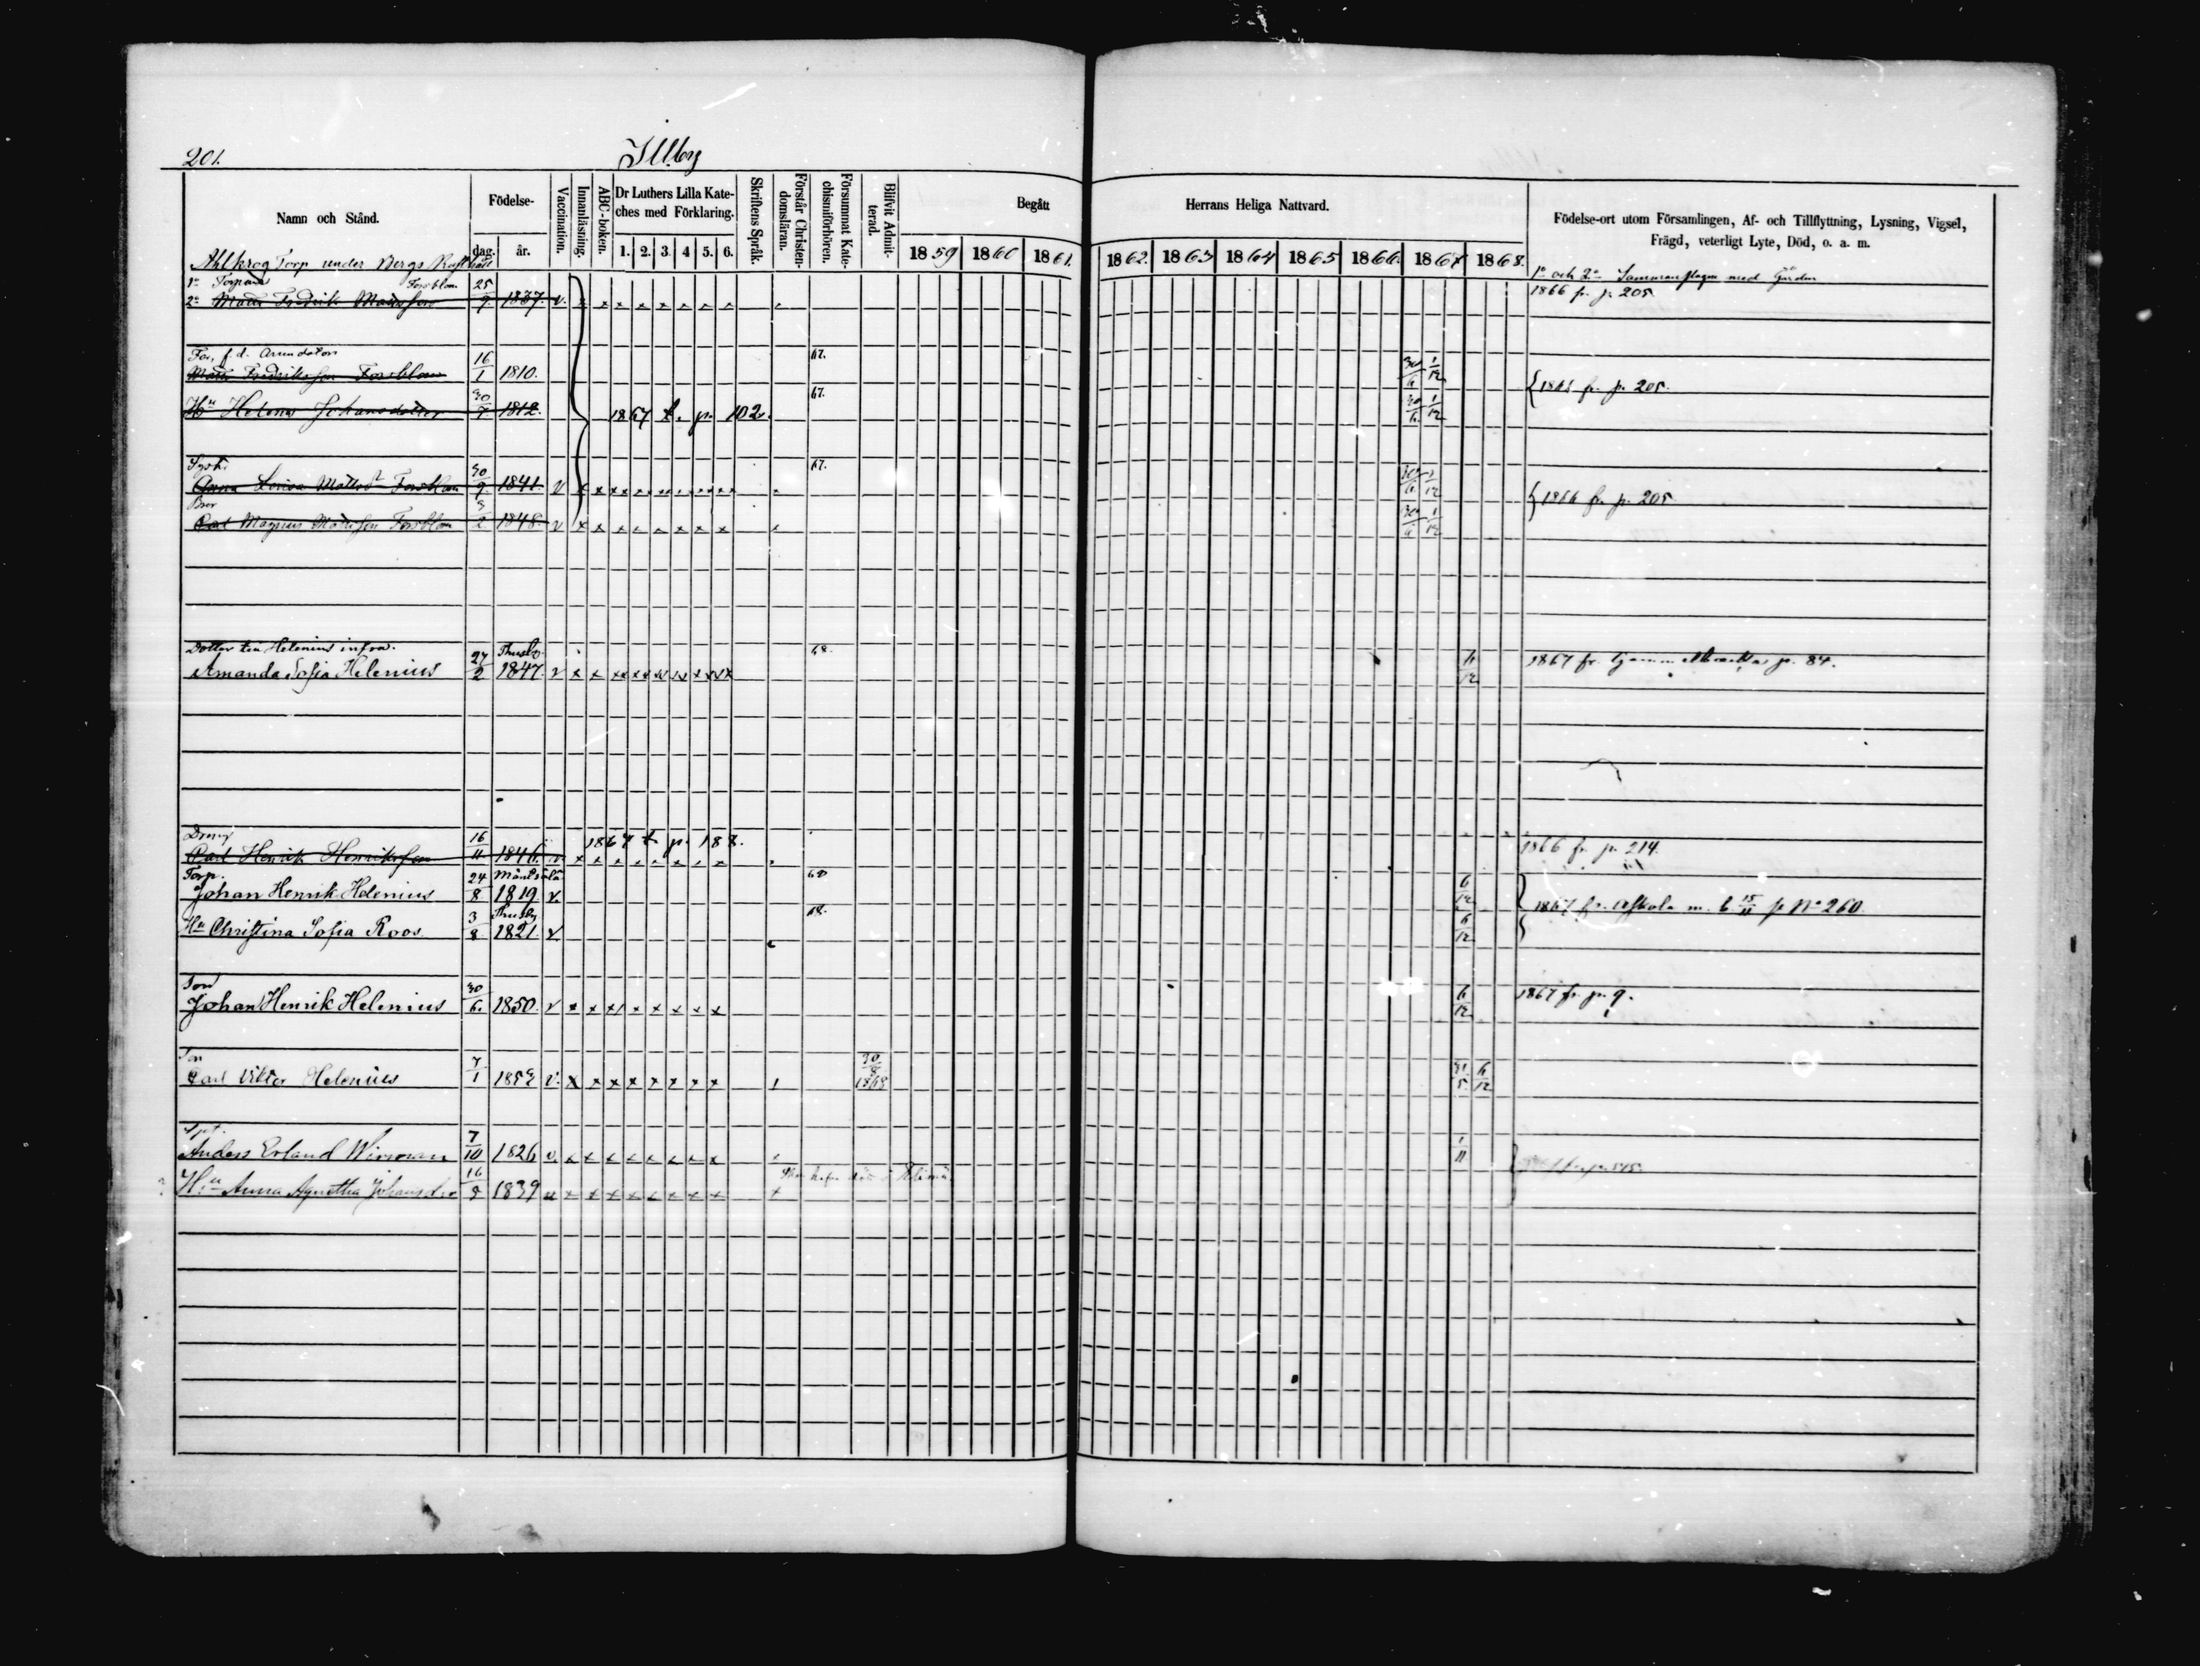 201.
Illby
Namn och Stånd.
Födelse-
dag.
år.
Vaccination.
Innanläsning.
ABC-boken.
Dr Luthers Lilla Kate-
ches med Förklaring.
1. 2. 3 4 5. 6.
Skriftens Språk.
Förstår Christen-
domsläran.
Försummat Kate-
chismiförhören.
Blifvit Admit-
terad.
Begått Herrans Heliga Nattvard.
1859 1860 1861. 1862. 1863 1864 1865 1866 1867 1868.
Födelse-ort utom Församlingen, Af- och Tillflyttning, Lysning, Vigsel,
Frägd, veterligt Lyte, Död, o. a. m.
Ahlkrog Torp under Bergs
1o och 2o Sammanslagen med Gården
1o Torpare Forsblom 25
2o Matts Fredrik Mattsson 9. 1837. v. 1866 fr. p. 205
Far, f. d. 16 67.
Matts Fredriksson Forsblom 1 1810. 30/6 1/12
Hu Helena Johansdotter 30/7. 1812. 1867 t. p. 102. 67. 30/6 1/12 1866 fr. p. 205.
Syst. 30 67.
Anna Lovisa Mattsd Forsblom 9. 1841. v 30/6 1/12
Bror 3
Carl Magnus Mattsson Forsblom 2. 1848. v 30/6 1/12 1866 fr. p. 205.
Dotter till Helenius infra. 27 Thusby. 68.
Amanda Sofia Helenius 2 1847. v 6/12 1867 fr. Gammelbacka p. 84.
Dräng 16 1867 t. p. 188.
Carl Henrik Henriksson 11. 1846. v 1866 fr. p. 214.
Torp. 24 Mäntsälä
Johan Henrik Helenius 8 1819 v. 6/12
3 Thusby 68.
Hu Christina Sofia Roos. 8. 1821. v 6/12 1867 fr. Askola m. b. 15/11 p No 260.
Son 30
Johan Henrik Helenius 6. 1850. v 6/12 1867 fr. p. 9.
Son 7 30
Carl Viktor Helenius 1 1852 v. 8 1868 31/5. 6/12
7
Anders Erland Wiman 10 1826 v. 1/11
16
Hu Anna Agnetha Johansdr 8 1839